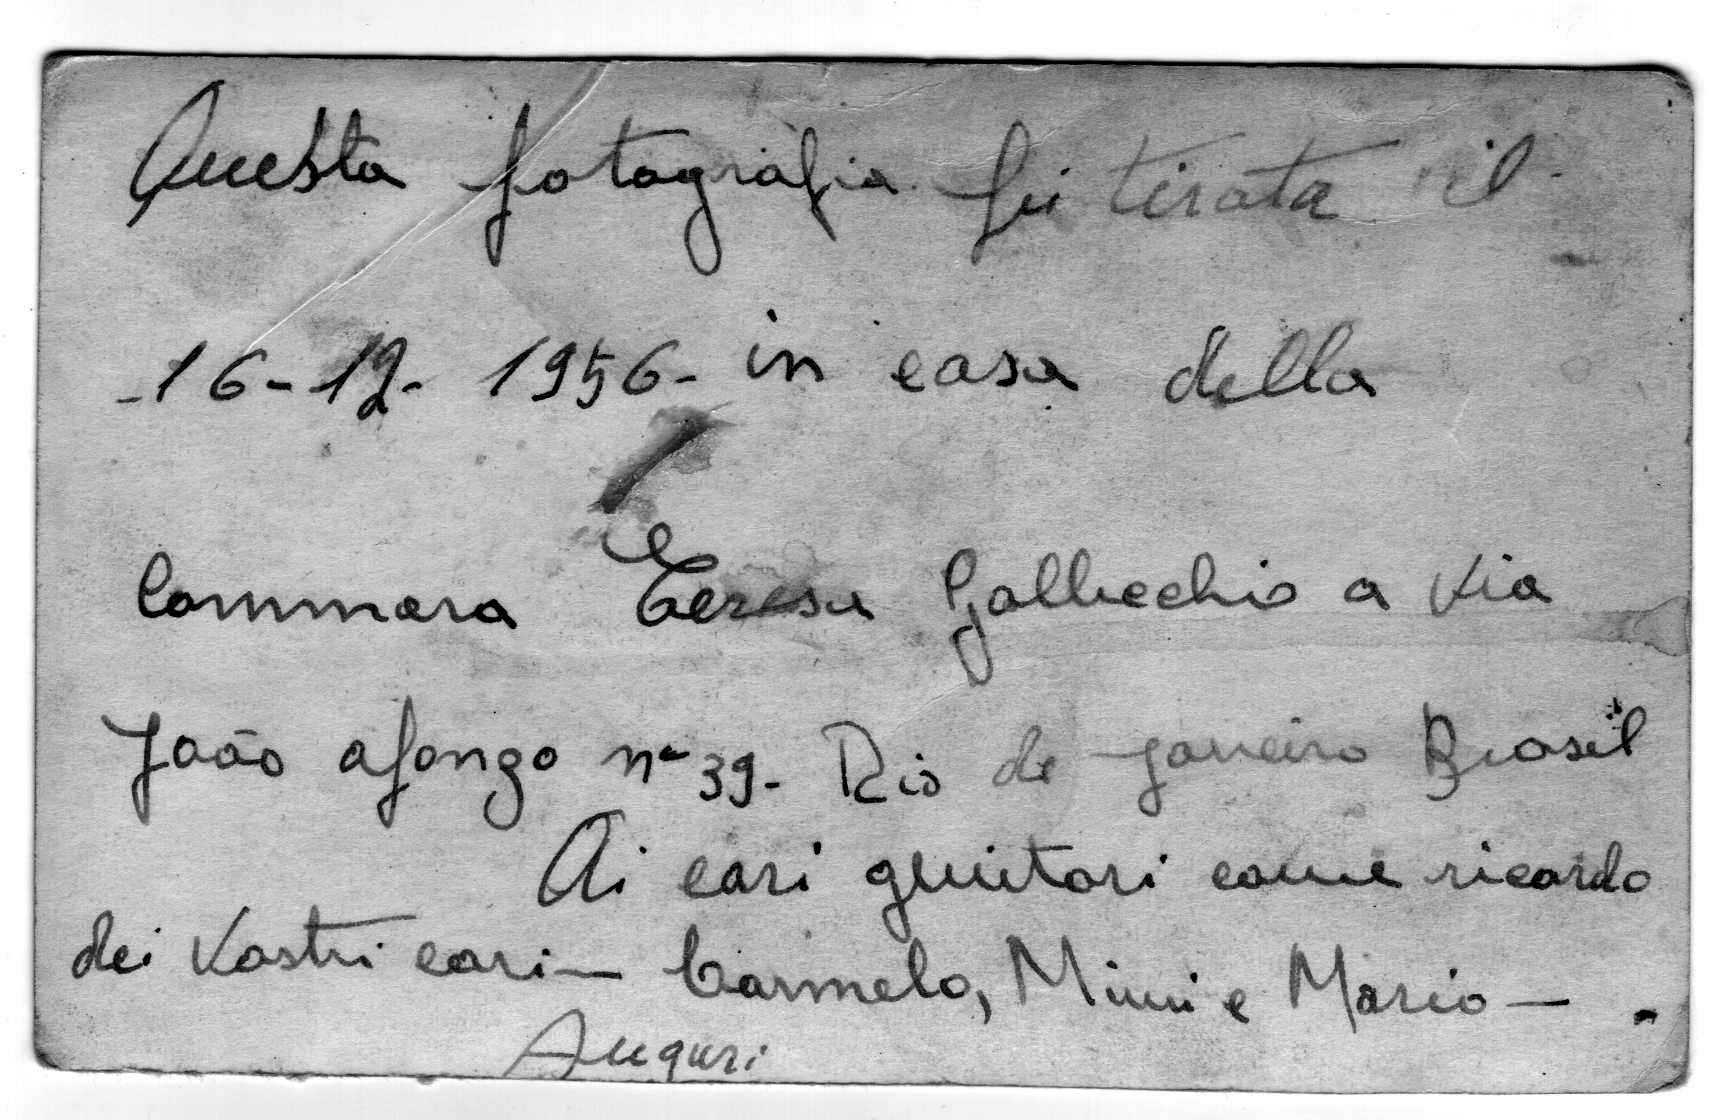 Questa fotografia fu tirata il
-16-12-1956- in casa della
Commara Teresa Gallucchio a Via
João afonzo nº 39- Rio de janeiro Brasil
Ai cari genitori come ricordo
dei Vostri cari— Carmelo, Mimi e Mario—.
Auguri